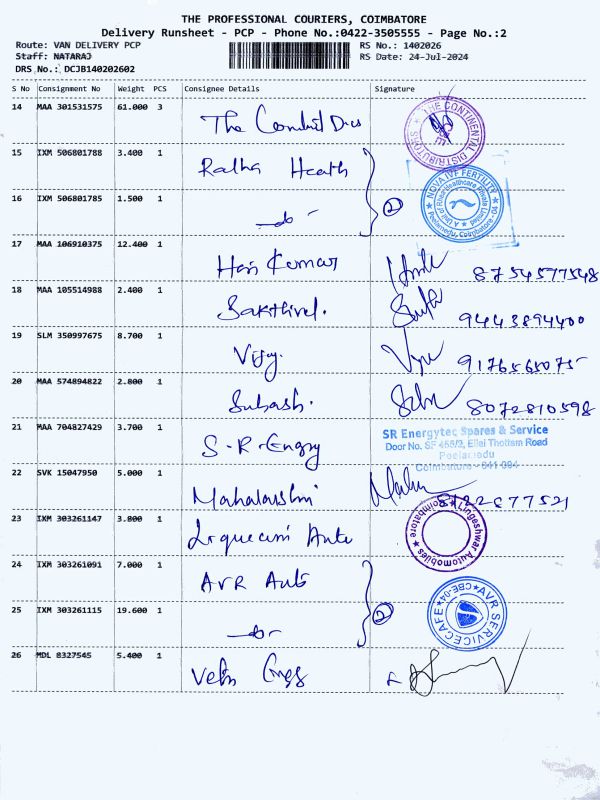 THE PROFESSIONAL COURIERS, COIMBATORE
Delivery Runsheet - PCP - Phone No.:0422-3505555 - Page No.:2
Route: VAN DELIVERY PCP RS No.: 1402026
Staff: NATARAJ RS Date: 24-Jul-2024
DRS No.: DCJB140202602
S No Consignment No Weight PCS Consignee Details Signature
14 MAA 301531575 61.000 3
THE CONTINENTAL DISTRIBUTORS
15 IXM 506801788 3.400 1
NOVA IVF FERTILITY
Peelamedu, Coimbatore
16 IXM 506801785 1.500 1
do
2
17 MAA 106910375 12.400 1
Hari Kumar
8754577548
18 MAA 105514988 2.400 1
Sakthivel.
9443894400
19 SLM 350997675 8.700 1
Vijy.
9176565075
20 MAA 574894822 2.800 1
Subash.
8072810598
21 MAA 704827429 3.700 1
S-R-Engry
SR Energytec Spares & Service
Door No. SF 455/2, Ellai Thottam Road
Peelamedu
Coimbatore - 641 004
22 SVK 15047950 5.000 1
Mahalakshmi
8122677521
23 IXM 303261147 3.800 1
Auto
24 IXM 303261091 7.000 1
AVR Auto
25 IXM 303261115 19.600 1
do
2
AVR SERVICECAFE CBE-04
26 MDL 8327545 5.400 1